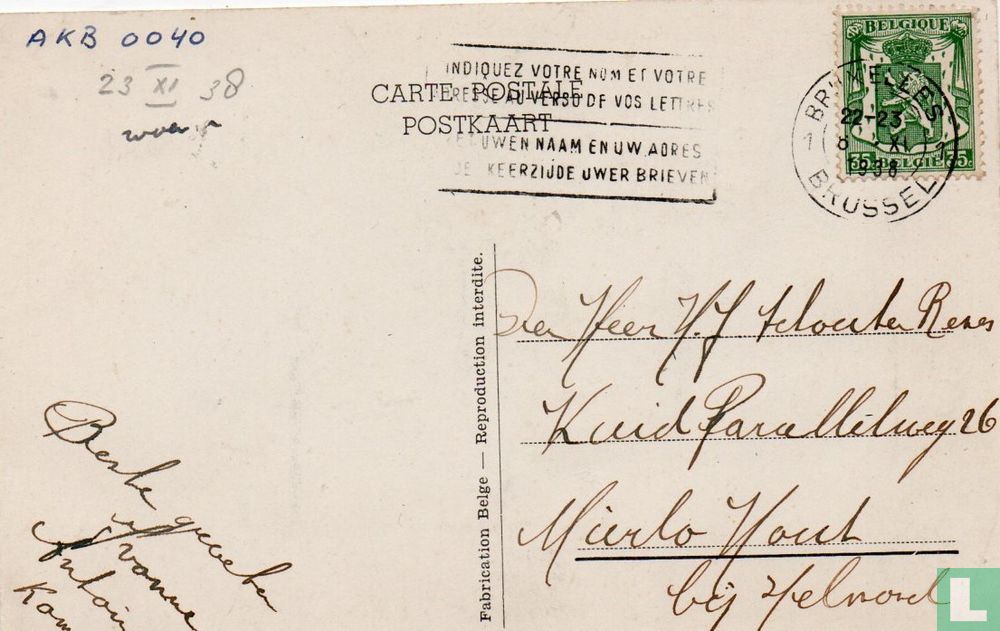 AKB 0040
23 XI 38
CARTE POSTALE
POSTKAART
INDIQUEZ VOTRE NOM ET VOTRE
RESSE AU VERSO DE VOS LETTRES
UWEN NAAM EN UW ADRES
KEERZIJDE UWER BRIEVEN
BELGIQUE
35 BELGIE 35c
BRUXELLES
1 1
22-23
8 XI
1938
BRUSSEL
Fabrication Belge — Reproduction interdite.
Den Heer H.J Schouten
Zuid Parallelweg 26
Mierlo Hout
bij Helmond
Beste groeten
Yvonne
L